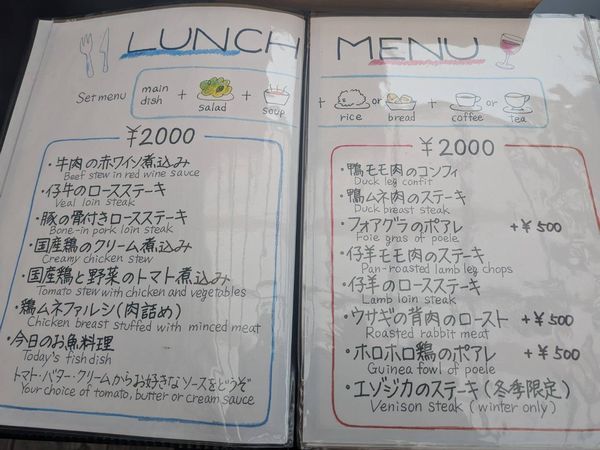 LUNCH MENU
Set menu
main dish + salad + soup + rice or bread + coffee or tea
¥2000
・牛肉の赤ワイン煮込み
Beef stew in red wine sauce
・仔牛のロースステーキ
Veal loin steak
・豚の骨付きロースステーキ
Bone-in pork loin steak
・国産鶏のクリーム煮込み
Creamy chicken stew
・国産鶏と野菜のトマト煮込み
Tomato stew with chicken and vegetables
・鶏ムネファルシ(肉詰め)
Chicken breast stuffed with minced meat
・今日のお魚料理
Today's fish dish
トマト・バター・クリームからお好きなソースをどうぞ
Your choice of tomato, butter or cream sauce
¥2000
・鴨モモ肉のコンフィ
Duck leg confit
・鴨ムネ肉のステーキ
Duck breast steak
・フォアグラのポアレ +¥500
Foie gras of poele
・仔羊モモ肉のステーキ
Pan-roasted lamb leg chops
・仔羊のロースステーキ
Lamb loin steak
・ウサギの背肉のロースト +¥500
Roasted rabbit meat
・ホロホロ鶏のポアレ +¥500
Guinea fowl of poele
・エゾジカのステーキ(冬季限定)
Venison steak (winter only)